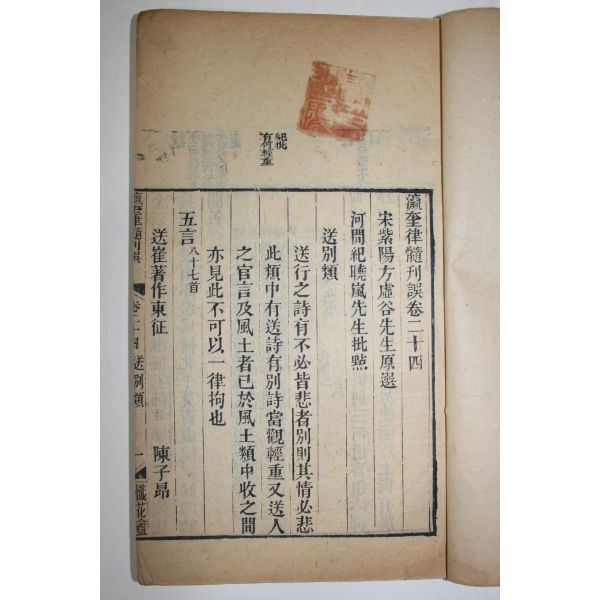 瀛奎律髓刊誤卷二十四
宋紫陽方虛谷先生原選
河間紀曉嵐先生批點
送別類
送行之詩有不必皆悲者別則其情必悲
此類中有送詩有別詩當觀輕重又送人
之官言及風土者已於風土類中收之間
亦見此不可以一律拘也
五言八十七首
送崔著作東征
陳子昂
紀批
有何輕重
瀛奎律髓刊誤 卷二十四 送別類 一 懺花盦